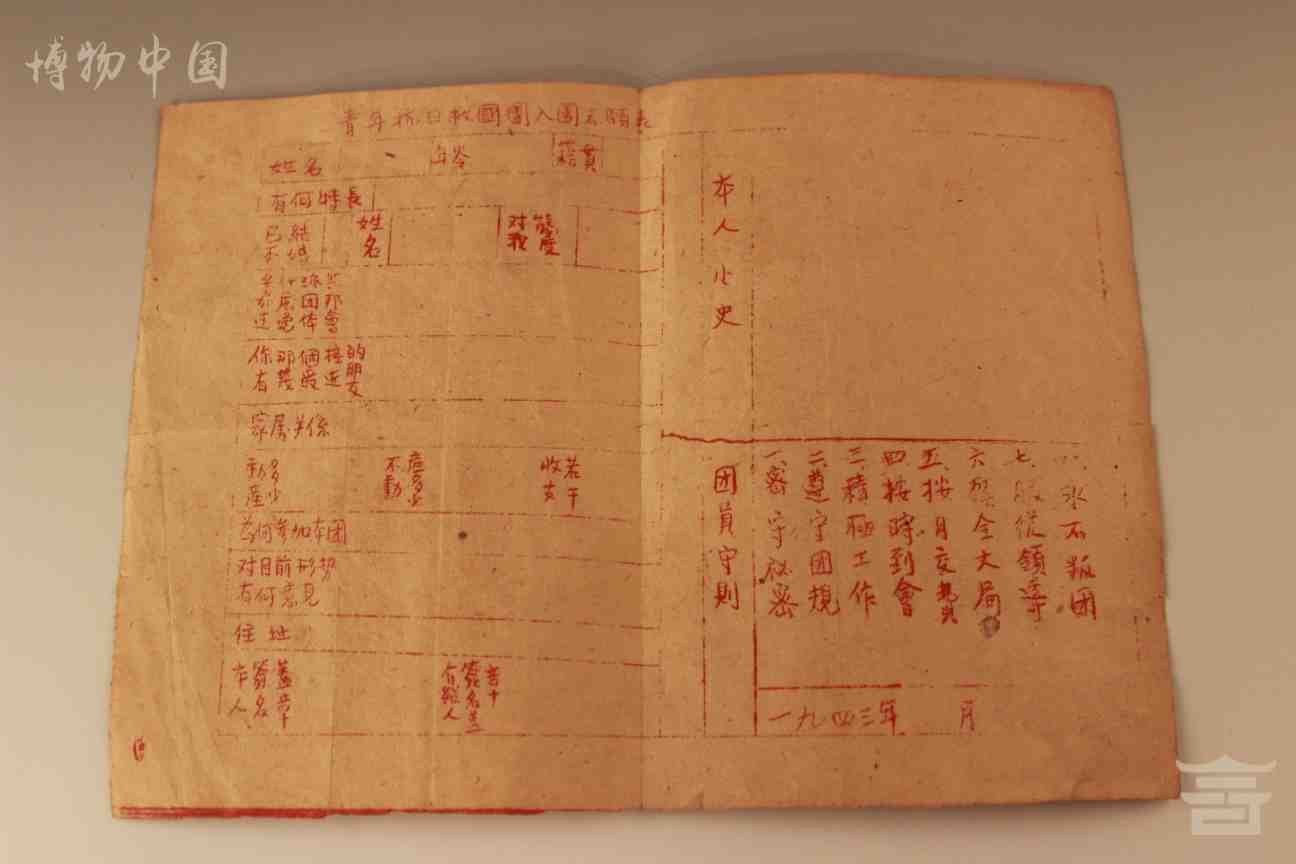 博物中国
青年抗日救國團入團志願表
姓名 年岺 籍貫
有何特長
已結 不 姓名 对我態度
你那個接的
有幾最近朋友
家属关係
動産多少 不動産多少 收支若干
為何参加本团
对目前形势
有何意見
住址
本人簽名蓋章 介紹人簽名盖章
本人小史
团員守則
一、密守秘密
二、遵守团規
三、積極工作
四、按時到會
五、按月交
六、顾全大局
七、服從領導
八、永不叛团
一九四三年 月